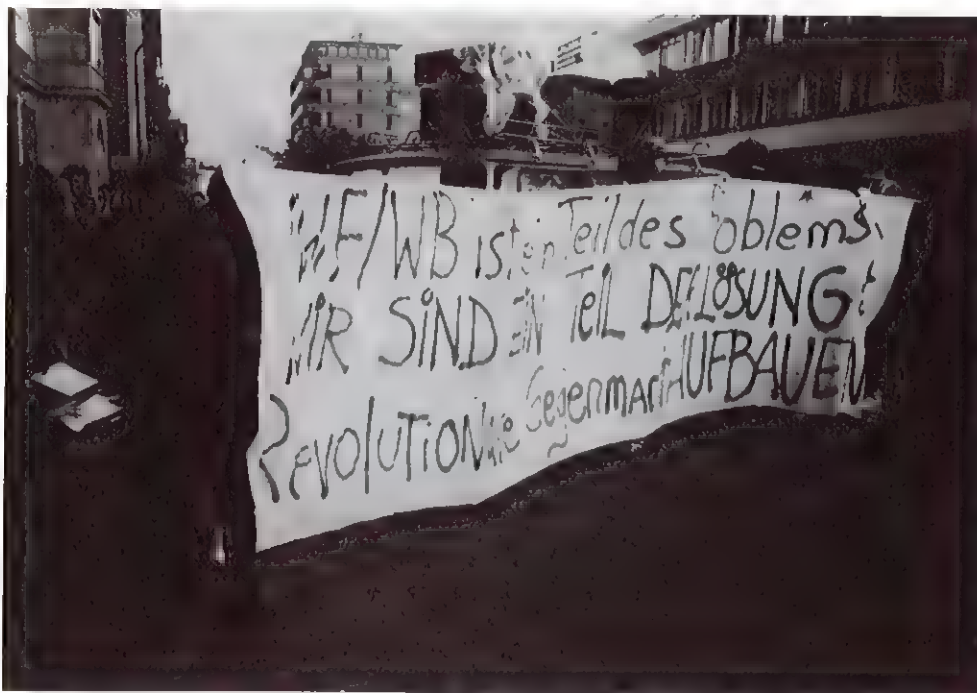 IWF/WB ist ein Teil des Problems.
WIR SIND EIN TEIL DER LÖSUNG!
REVOLUTIONÄRE Gegenmacht AUFBAUEN